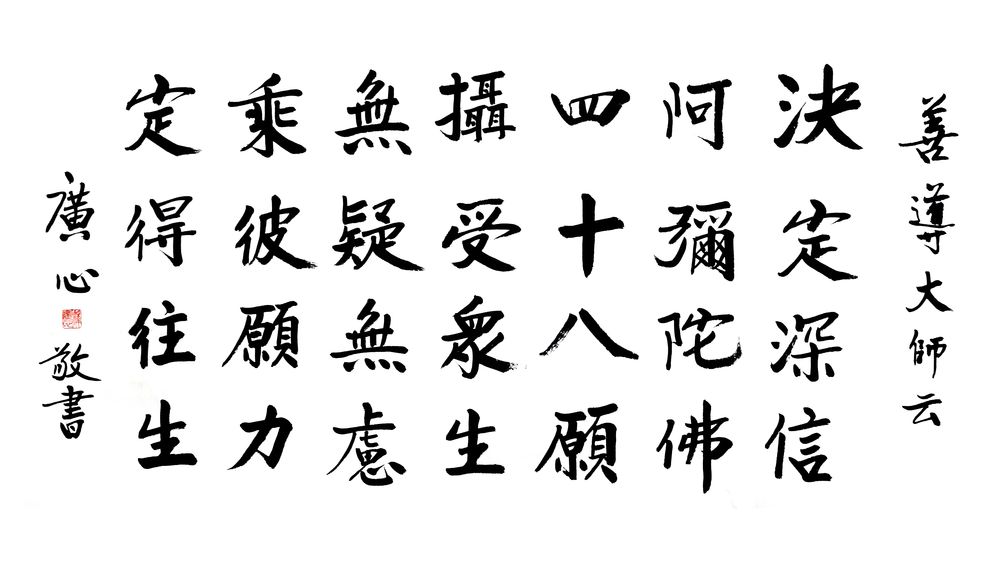 善導大師云
決定深信
阿彌陀佛
四十八願
攝受眾生
無疑無慮
乘彼願力
定得往生
廣心敬書